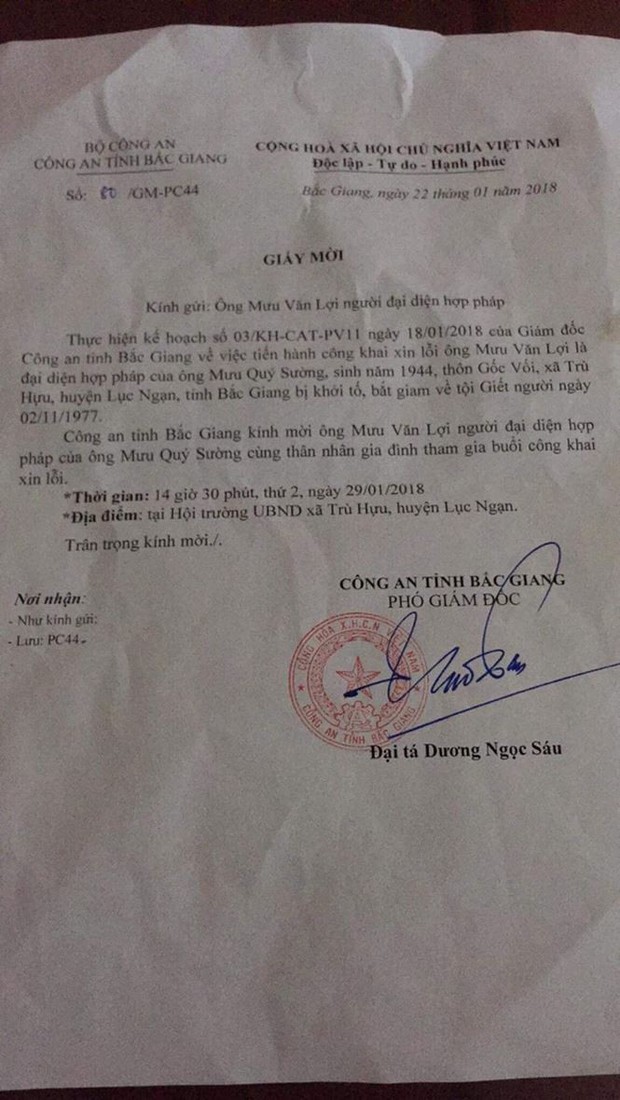 BỘ CÔNG AN
CÔNG AN TỈNH BẮC GIANG
Số: /GM-PC44
CỘNG HOÀ XÃ HỘI CHỦ NGHĨA VIỆT NAM
Độc lập - Tự do - Hạnh phúc
Bắc Giang, ngày 22 tháng 01 năm 2018
GIẤY MỜI
Kính gửi: Ông Mưu Văn Lợi người đại diện hợp pháp
Thực hiện kế hoạch số 03/KH-CAT-PV11 ngày 18/01/2018 của Giám đốc
Công an tỉnh Bắc Giang về việc tiến hành công khai xin lỗi ông Mưu Văn Lợi là
đại diện hợp pháp của ông Mưu Quý Sường, sinh năm 1944, thôn Gốc Vối, xã Trù
Hựu, huyện Lục Ngạn, tỉnh Bắc Giang bị khởi tố, bắt giam về tội Giết người ngày
02/11/1977.
Công an tỉnh Bắc Giang kính mời ông Mưu Văn Lợi người đại diện hợp
pháp của ông Mưu Quý Sường cùng thân nhân gia đình tham gia buổi công khai
xin lỗi.
*Thời gian: 14 giờ 30 phút, thứ 2, ngày 29/01/2018
*Địa điểm: tại Hội trường UBND xã Trù Hựu, huyện Lục Ngạn.
Trân trọng kính mời./.
Nơi nhận:
- Như kính gửi;
- Lưu: PC44-
CÔNG AN TỈNH BẮC GIANG
PHÓ GIÁM ĐỐC
CỘNG HÒA X.H.C.N VIỆT NAM
CÔNG AN TỈNH BẮC GIANG
Đại tá Dương Ngọc Sáu